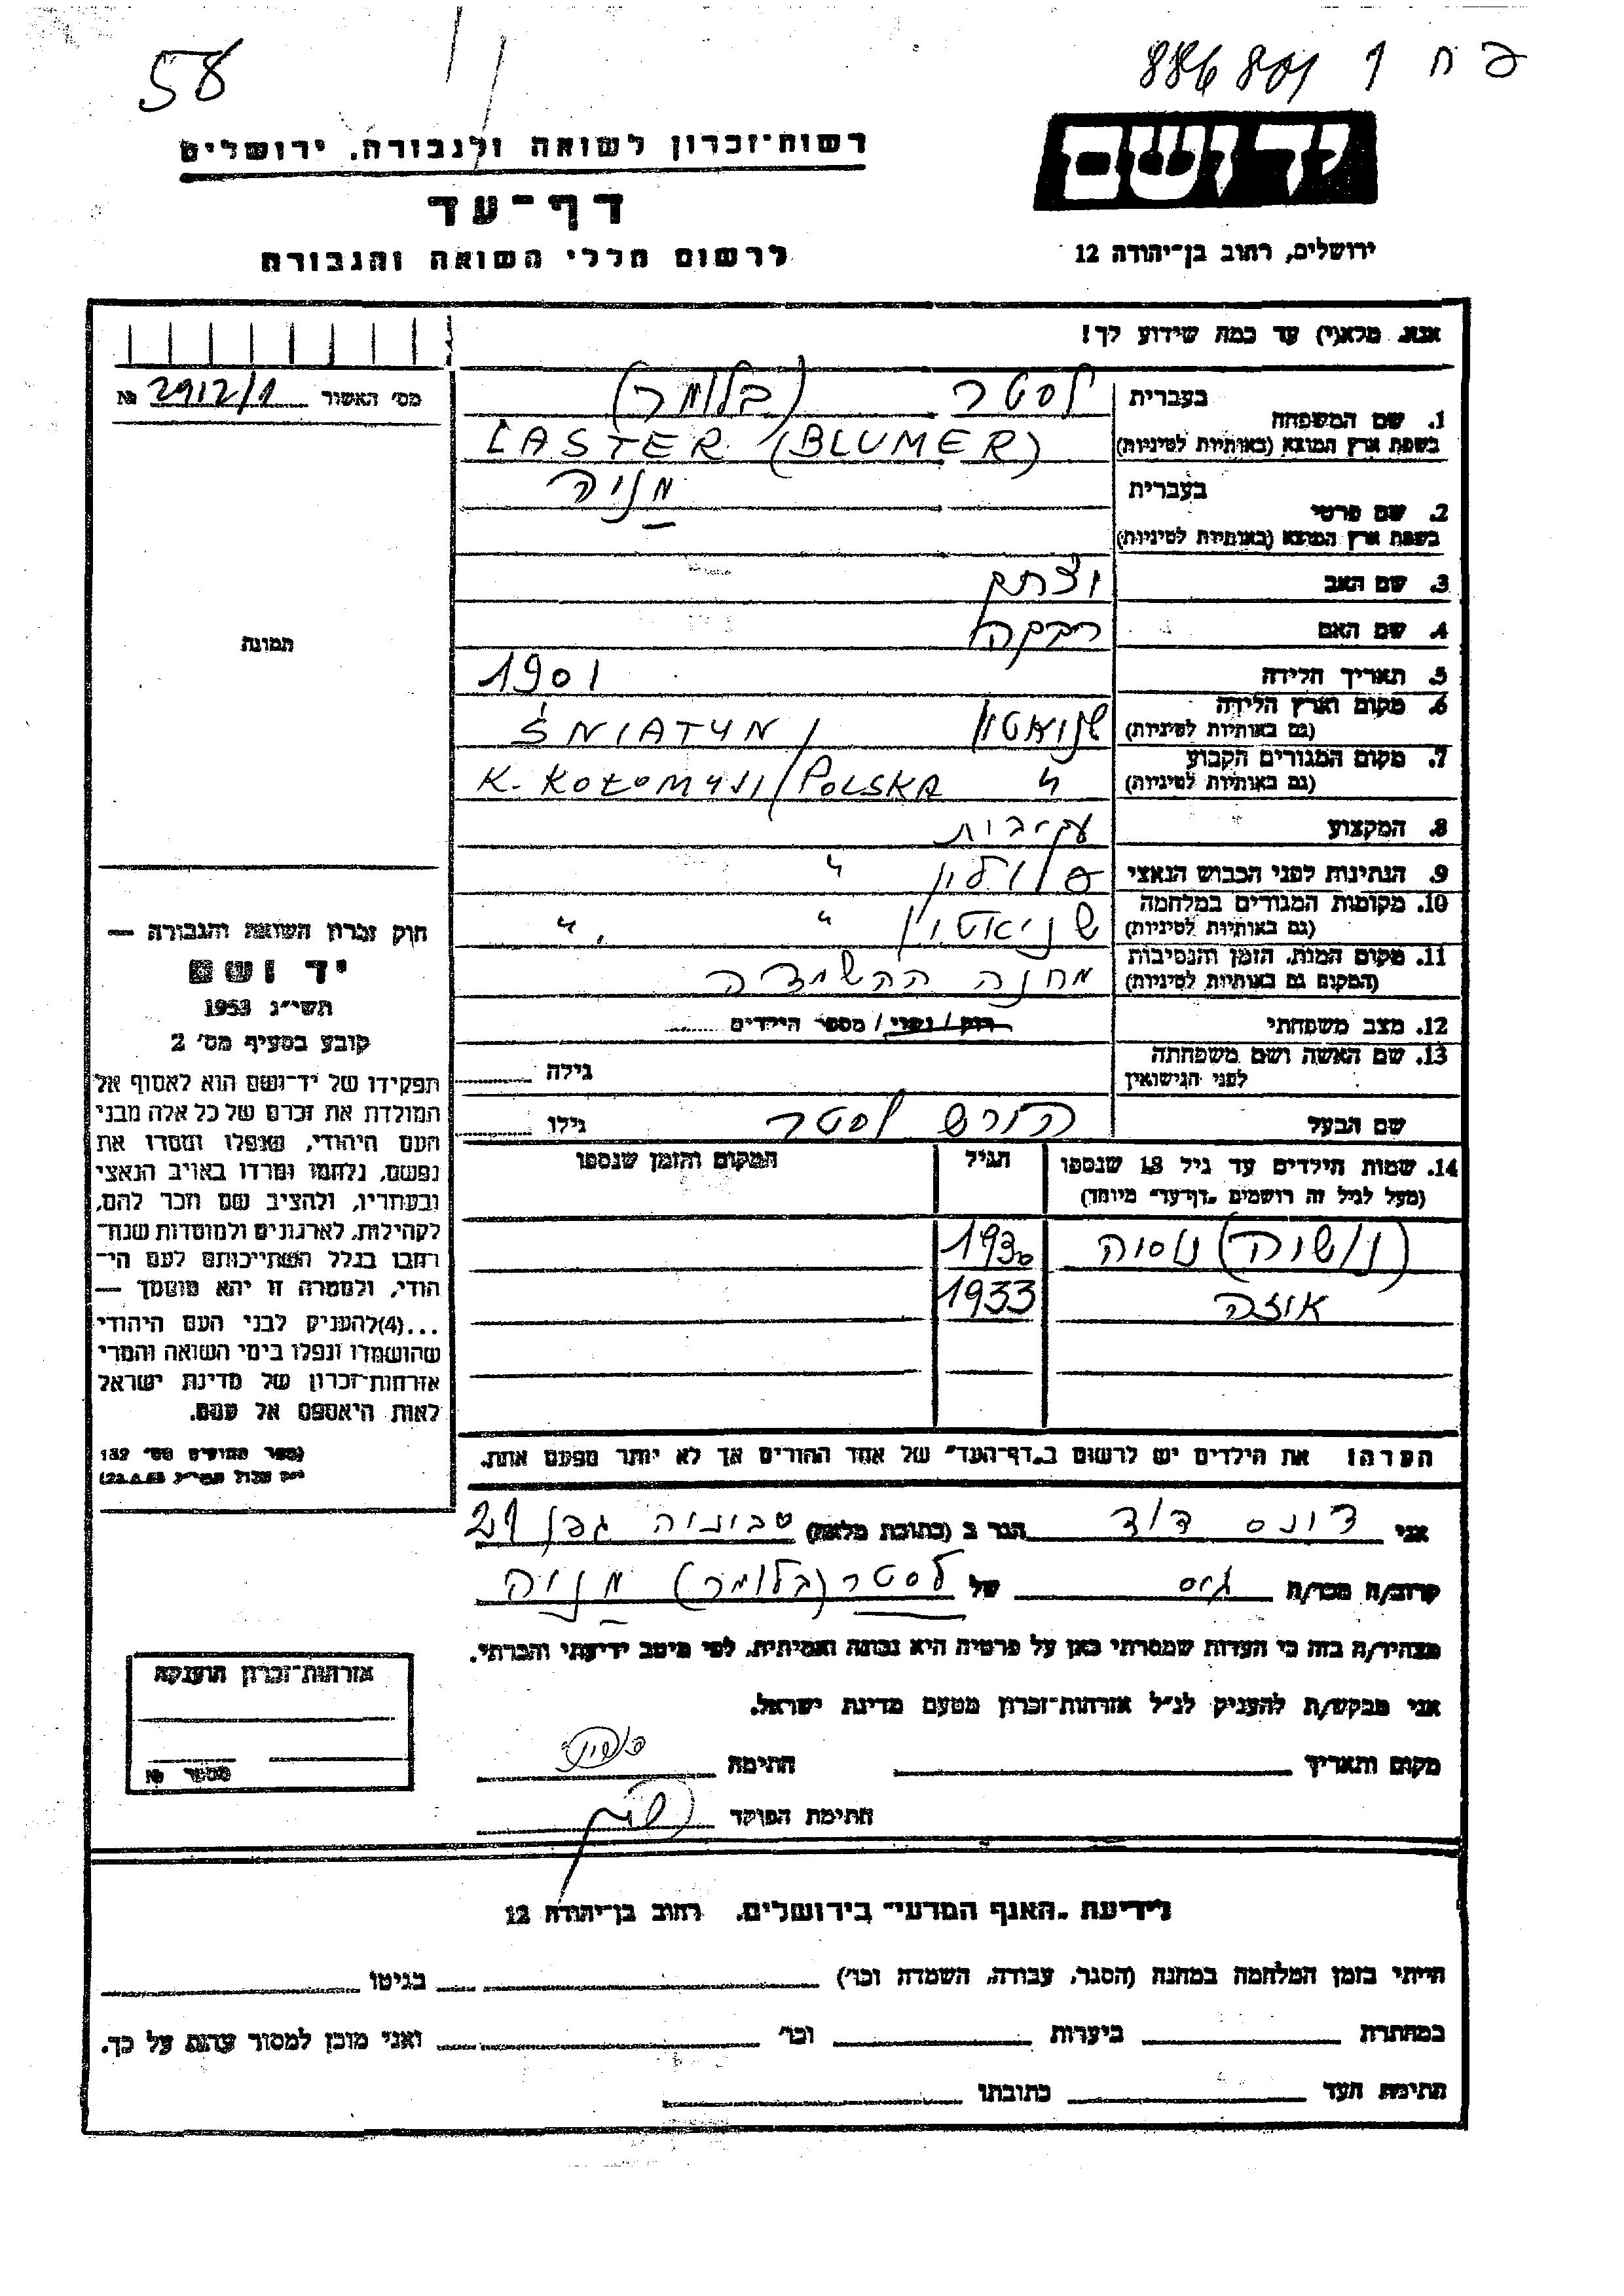 58
פ ח 1
886 801
יד ושם
רשות־זכרון לשואה ולגבורה. ירושלים
דף־עד
לרשום חללי השואה והגבורה
ירושלים, רחוב בן־יהודה 12
אנא, מלא(י) עד כמה שידוע לך!
מס׳ האשור 2912/1 №
1. שם המשפחה
בעברית לסטר (בלומר)
בשפת ארץ המוצא (באותיות לטיניות) LASTER (BLUMER)
2. שם פרטי
בעברית מניה
בשפת ארץ המוצא (באותיות לטיניות)
3. שם האב יצחק
4. שם האם רבקה
תמונה
5. תאריך הלידה 1901
6. מקום וארץ הלידה
(גם באותיות לטיניות) שניאטין ŚNIATYN /
7. מקום המגורים הקבוע
(גם באותיות לטיניות) " K. KOŁOMYJI / POLSKA
8. המקצוע עקיבות
9. הנתינות לפני הכבוש הנאצי פולין "
10. מקומות המגורים במלחמה
(גם באותיות לטיניות) שניאטין " "
11. מקום המות, הזמן והנסיבות
(המקום גם באותיות לטיניות) מחנה ההשמדה
12. מצב משפחתי רוק / נשוי / מספר הילדים
13. שם האשה ושם משפחתה
לפני הנישואין גילה
שם הבעל הירש לסטר גילו
14. שמות הילדים עד גיל 18 שנספו הגיל המקום והזמן שנספו
(מעל לגיל זה רושמים „דף־עד״ מיוחד)
נוסיה 1930
1933
הערה: את הילדים יש לרשום ב„דף־העד״ של אחד ההורים אך לא יותר מפעם אחת.
חוק זכרון השואה והגבורה —
יד ושם
תשי״ג 1953
קובע בסעיף מס׳ 2
תפקידו של יד־ושם הוא לאסוף אל
המולדת את זכרם של כל אלה מבני
העם היהודי, שנפלו ומסרו את
נפשם, נלחמו ומרדו באויב הנאצי
ובעוזריו, ולהציב שם וזכר להם,
לקהילות, לארגונים ולמוסדות שנח־
רבו בגלל השתייכותם לעם הי־
הודי, ולמטרה זו יהא מוסמך —
...(4)להעניק לבני העם היהודי
שהושמדו ונפלו בימי השואה והמרי
אזרחות־זכרון של מדינת ישראל
לאות היאספם אל עמם.
(ספר החוקים מס׳ 132
אני דונס דוד הגר ב (כתובת מלאה) טבעיה גפן 29
קרוב/ה מכר/ה גיס של לסטר (בלומר) מניה
מצהיר/ה בזה כי העדות שמסרתי כאן על פרטיה היא נכונה ואמיתית, לפי מיטב ידיעתי והכרתי.
אני מבקש/ת להעניק לנ״ל אזרחות־זכרון מטעם מדינת ישראל.
מקום ותאריך חתימה
חתימת הפוקד
אזרחות־זכרון הוענקה
מספר №
לידיעת „האגף המדעי״ בירושלים, רחוב בן־יהודה 12
הייתי בזמן המלחמה במחנה (הסגר, עבודה, השמדה וכו׳) בגיטו
במחתרת ביערות וכו׳ ואני מוכן למסור עדות על כך.
חתימת העד כתובתו